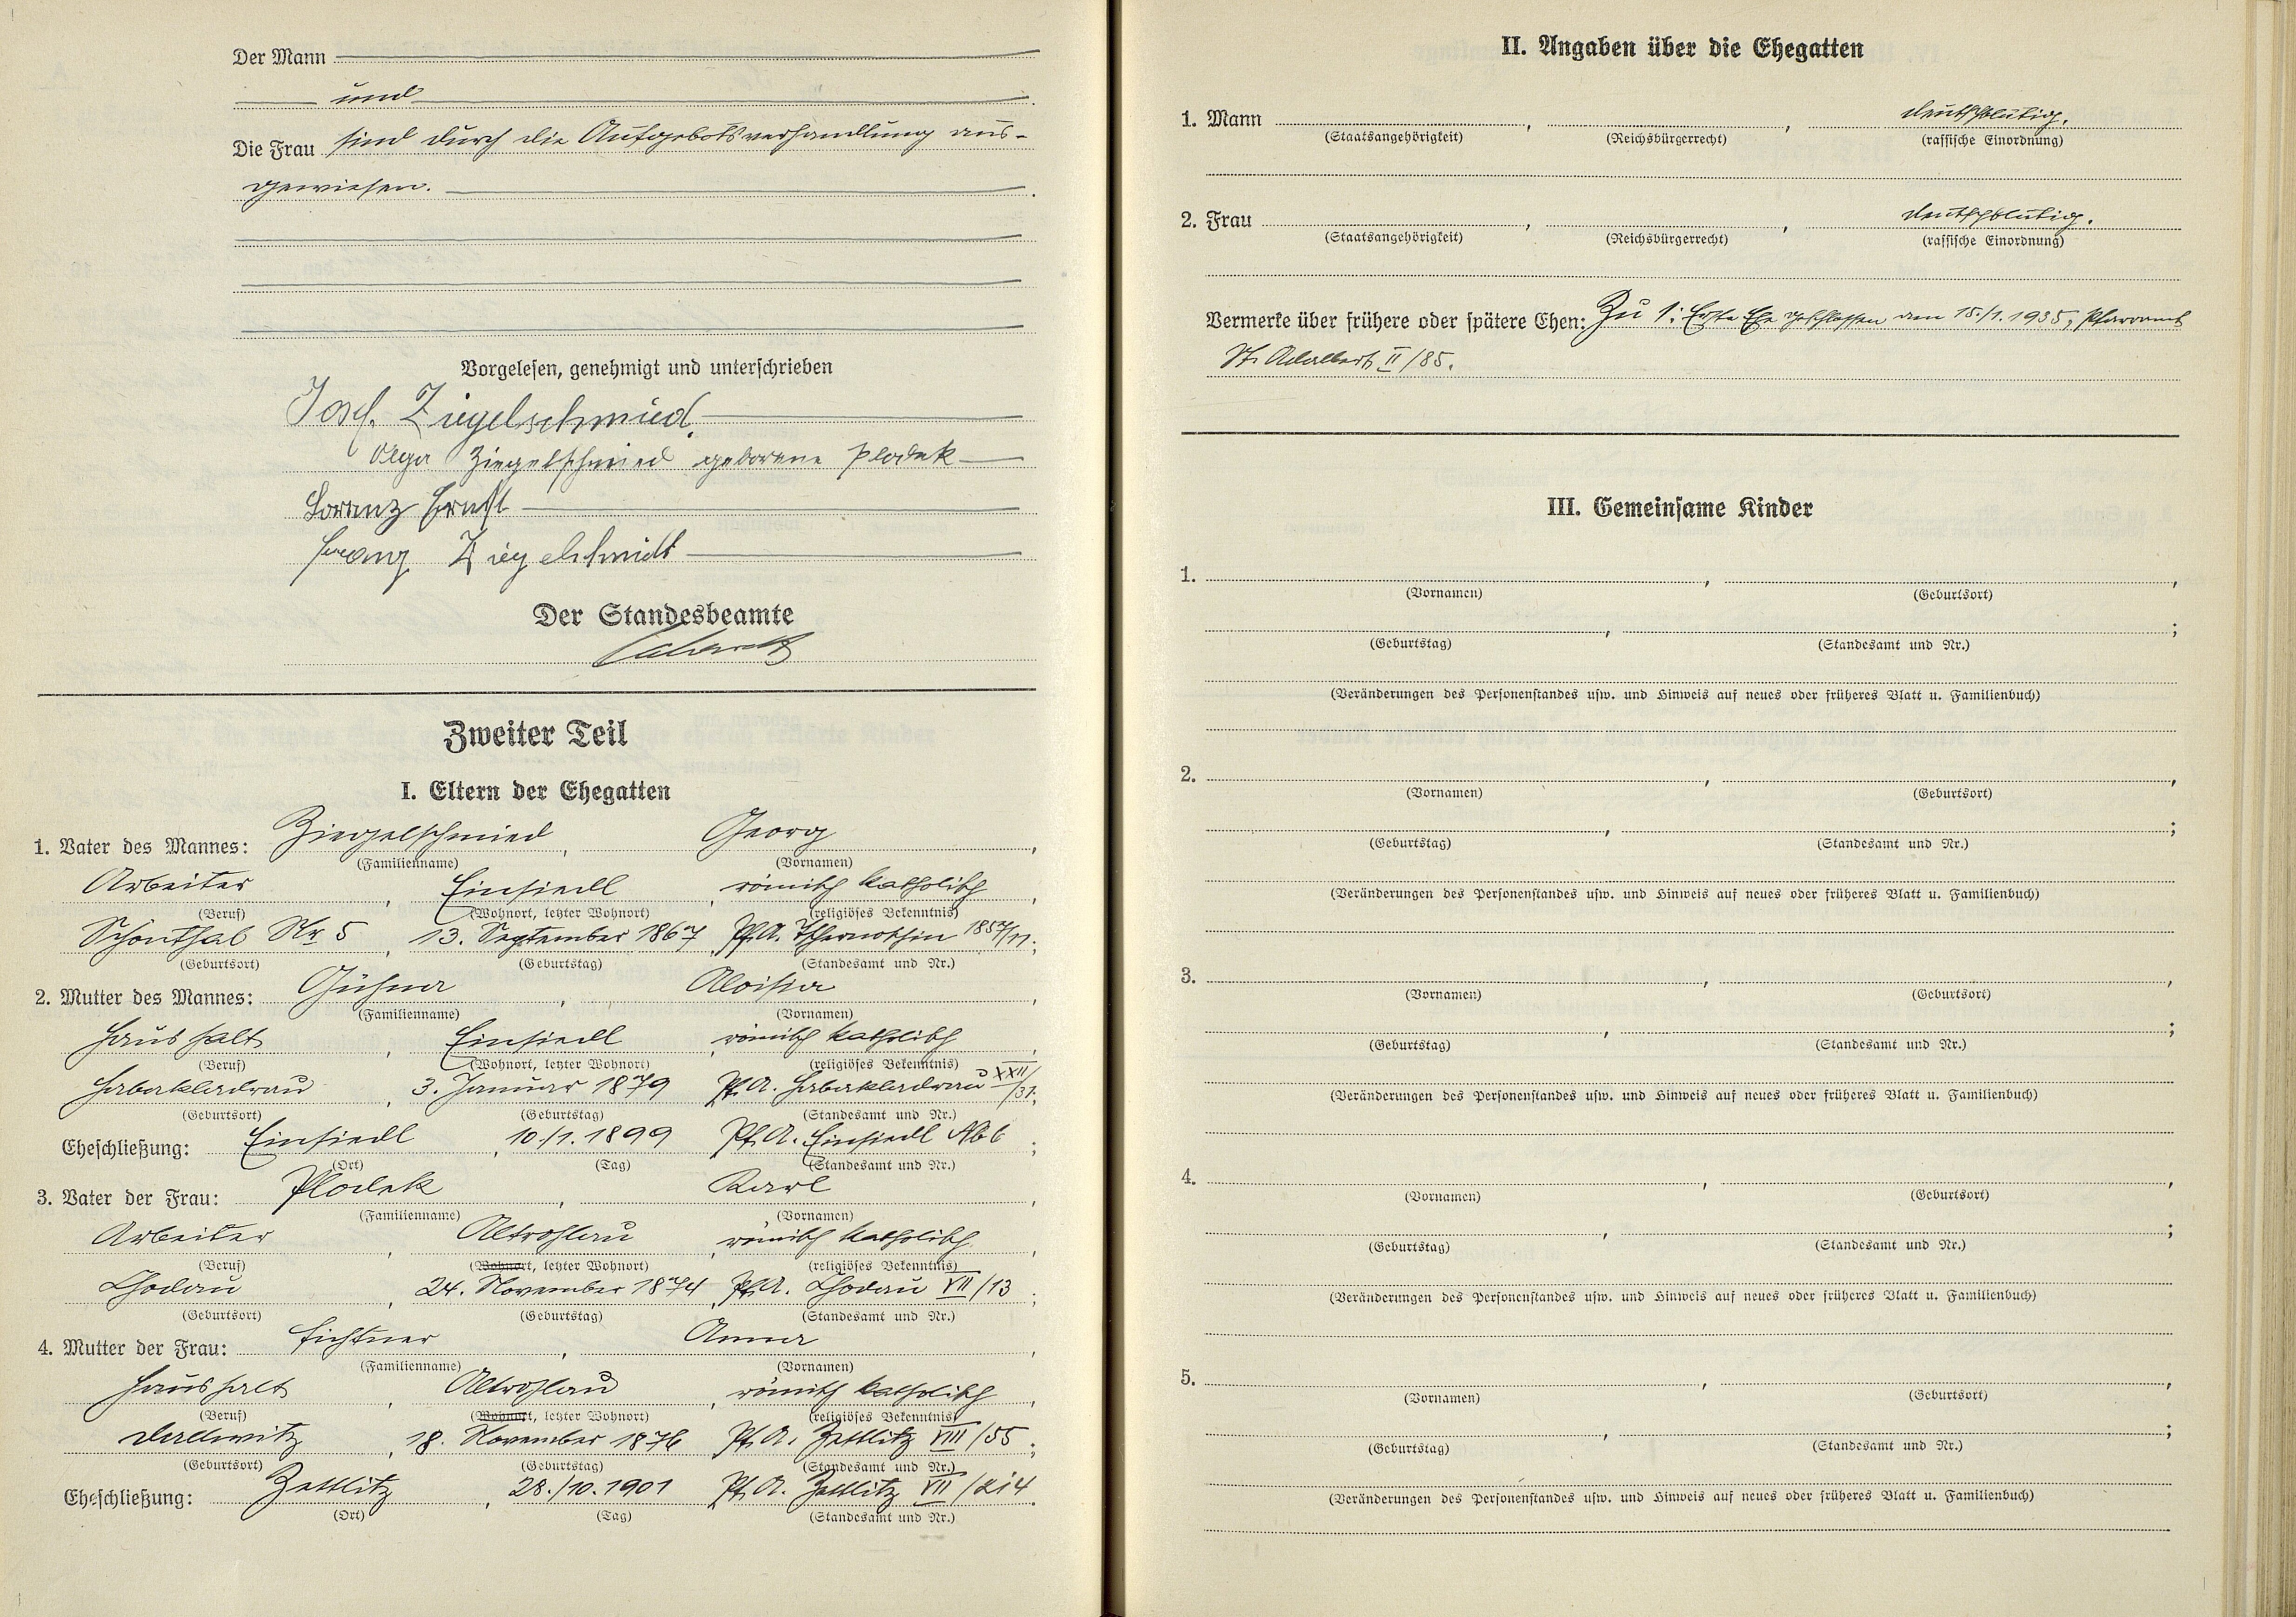 Der Mann
und
Die Frau sind durch die Aufgebotsverhandlung aus-
gewiesen.
Vorgelesen, genehmigt und unterschrieben
Josef Ziegelschmied
Olga Ziegelschmied geborene Plodek
Lorenz Ernst
Franz Ziegelschmidt
Der Standesbeamte
Zweiter Teil
I. Eltern der Ehegatten
1. Vater des Mannes: Ziegelschmied, Georg,
(Familienname) (Vornamen)
Arbeiter, Einsiedl, römisch katholisch,
(Beruf) (Wohnort, letzter Wohnort) (religiöses Bekenntnis)
Schönthal Nr 5, 13. September 1867, Pf.A. 1857/11;
(Geburtsort) (Geburtstag) (Standesamt und Nr.)
2. Mutter des Mannes: Aloisia,
(Familienname) (Vornamen)
Haushalt, Einsiedl, römisch katholisch,
(Beruf) (Wohnort, letzter Wohnort) (religiöses Bekenntnis)
Habakladrau, 3. Januar 1879, Pf.A. Habakladrau XXII/31;
(Geburtsort) (Geburtstag) (Standesamt und Nr.)
Eheschließung: Einsiedl, 10./1. 1899, Pf.A. Einsiedl;
(Ort) (Tag) (Standesamt und Nr.)
3. Vater der Frau: Plodek, Karl,
(Familienname) (Vornamen)
Arbeiter, Altrohlau, römisch katholisch,
(Beruf) (Wohnort, letzter Wohnort) (religiöses Bekenntnis)
Chodau, 24. November 1874, Pf.A. Chodau VII/13;
(Geburtsort) (Geburtstag) (Standesamt und Nr.)
4. Mutter der Frau: Fichtner, Anna,
(Familienname) (Vornamen)
Haushalt, Altrohlau, römisch katholisch,
(Beruf) (Wohnort, letzter Wohnort) (religiöses Bekenntnis)
Dallwitz, 18. November 1876, Pf.A. Zettlitz VIII/55;
(Geburtsort) (Geburtstag) (Standesamt und Nr.)
Eheschließung: Zettlitz, 28./10. 1901 Pf.A. Zettlitz VII/214.
(Ort) (Tag) (Standesamt und Nr.)
II. Angaben über die Ehegatten
1. Mann , , deutschblütig.
(Staatsangehörigkeit) (Reichsbürgerrecht) (rassische Einordnung)
2. Frau , , deutschblütig.
(Staatsangehörigkeit) (Reichsbürgerrecht) (rassische Einordnung)
Vermerke über frühere oder spätere Ehen: Zu 1: Erste Ehe geschlossen am 15./1. 1935, Pfarramt
St. Adalbert II/85.
III. Gemeinsame Kinder
1. , ,
(Vornamen) (Geburtsort)
, ;
(Geburtstag) (Standesamt und Nr.)
(Veränderungen des Personenstandes usw. und Hinweis auf neues oder früheres Blatt u. Familienbuch)
2. , ,
(Vornamen) (Geburtsort)
, ;
(Geburtstag) (Standesamt und Nr.)
(Veränderungen des Personenstandes usw. und Hinweis auf neues oder früheres Blatt u. Familienbuch)
3. , ,
(Vornamen) (Geburtsort)
, ;
(Geburtstag) (Standesamt und Nr.)
(Veränderungen des Personenstandes usw. und Hinweis auf neues oder früheres Blatt u. Familienbuch)
4. , ,
(Vornamen) (Geburtsort)
, ;
(Geburtstag) (Standesamt und Nr.)
(Veränderungen des Personenstandes usw. und Hinweis auf neues oder früheres Blatt u. Familienbuch)
5. , ,
(Vornamen) (Geburtsort)
, ;
(Geburtstag) (Standesamt und Nr.)
(Veränderungen des Personenstandes usw. und Hinweis auf neues oder früheres Blatt u. Familienbuch)